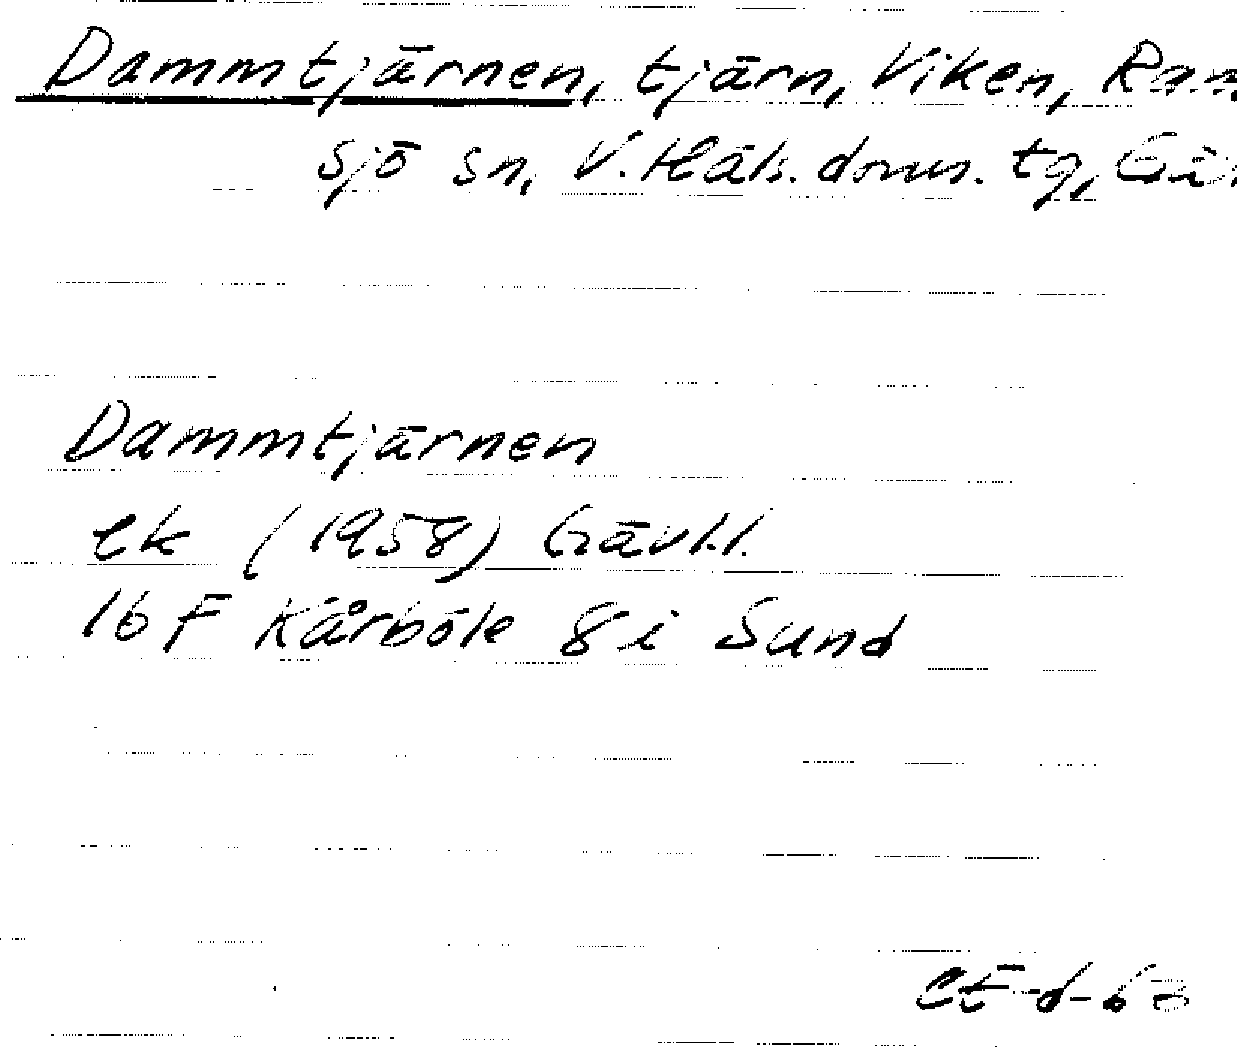 Dammtjärnen, tjärn, Viken, Ram
sjö sn, V. Häls. doms. tg, Gäv
Dammtjärnen
ek (1958) Gävl.l.
16 F Kårböle 8 i Sund